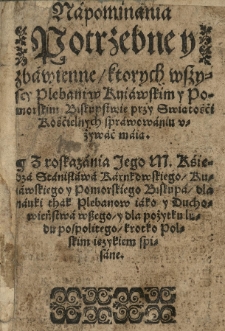 Napominania
Potrzebne y
zbawienne / ktorych wszy⸗
scy Plebani w Kuiawskim y Po⸗
morskim Biskupstwie przy Swiatości
Kościelnych sprawowaniu v⸗
żywać maia.
¶ Z roskazania Jego M. Kśie⸗
dza Stanisława Karnkowskiego / Ku⸗
iawskiego y Pomorskiego Biskupa / dla
nauki thak Plebanow iako y Ducho⸗
wieństwa wszego / y dla pożytku lu⸗
du pospolitego / krotko Pol⸗
skim ięzykiem spi⸗
sane.